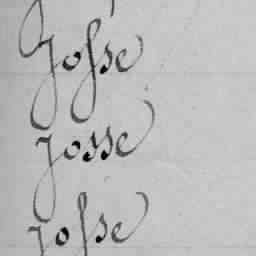 Joſse
Josse
joſse